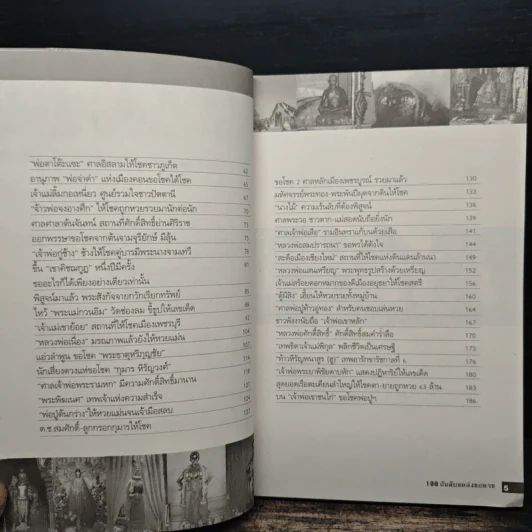 "พ่อตาโต๊ะแซะ" ศาลอิสลามให้โชคชาวภูเก็ต 62
อานุภาพ "พ่อจ่าดำ" แห่งเมืองคอนขอโชคได้โชค 65
เจ้าแม่ลิ้มกอเหนี่ยว ศูนย์รวมใจชาวปัตตานี 67
"จ้าวพ่อจงอางศึก" ให้โชคถูกหวยรวยมานักต่อนัก 70
ศาลศาลาต้นจันทน์ สถานที่ศักดิ์สิทธิ์ย่านศิริราช
ออกพรรษาขอโชคจากต้นจามจุรียักษ์ มีลุ้น
"เจ้าพ่อกู่ช้าง" ช้างให้โชคคู่บารมีพระนางจามเทวี
ขึ้น "เขาคิชฌกูฏ" หนึ่งปีมีครั้ง
ขออะไรก็ได้เพียงอย่างเดียวเท่านั้น
พิสูจน์มาแล้ว พระสังกัจจายกวักเรียกทรัพย์
ไหว้ "พระแม่กวนอิม" วัดช่องลม ชี้รูปให้เลขเด็ด
"เจ้าแม่เขาย้อย" สถานที่ให้โชคเมืองเพชรบุรี
"หลวงพ่อเนื่อง" มรณภาพแล้วยังให้หวยแม่น
แอ่วลำพูน ขอโชค "พระธาตุหริภุญชัย"
นักเสี่ยงดวงแห่ขอโชค "กุมาร หิรัญวงค์"
"ศาลเจ้าพ่อพระรามหก" มีความศักดิ์สิทธิ์มานาน
"พระพิฆเนศ" เทพเจ้าแห่งความสำเร็จ 124
"พ่อปู่ต้นกร่าง"ให้หวยแม่นจนเจ้ามือสลบ 127
ด.ช.สมศักดิ์-ลูกกรอกกุมารให้โชค
ขอโชค 2 ศาลหลักเมืองเพชรบูรณ์ รวยมาแล้ว 130
มหัศจรรย์พระทอง-พระพันปีผุดจากดินให้โชค 133
"นางไม้" ความเร้นลับที่ต้องพิสูจน์ 136
ศาลพระวอ ชาวตาก-แม่สอดนับถือยิ่งนัก 139
"ศาลเจ้าพ่อเสือ" รามอินทราแก้บนด้วยเสือ 141
"หลวงพ่อสมปรารถนา" ขอพรได้ดังใจ 144
"สะดือเมืองเชียงใหม่" สถานที่ให้โชคแห่งดินแดนล้านนา 147
"หลวงพ่อแสนเหรียญ" พระพุทธรูปสร้างด้วยเหรียญ 152
เจ้าแม่สร้อยดอกหมากของดีเมืองอยุธยาให้โชคสตรี 156
"ตุ๊ผีลิง" เฮี้ยนให้หวยรวยทั้งหมู่บ้าน 160
"ศาลพ่อปู่ท้าวอู่ทอง" สำหรับคนชอบเล่นหวย 164
ชาวพังงานับถือ "เจ้าพ่อเขาหลัก" 167
"หลวงพ่อศักดิ์สิทธิ์" ศักดิ์สิทธิ์สมคำร่ำลือ 170
"เทพธิดาเจ้าแม่พิกุล" พลิกชีวิตเป็นเศรษฐี 173
"ท้าวหิรัญพนาสูร (ฮู)" เทพอารักษ์ราชกาลที่ 6 176
"เจ้าพ่อพระยาพิชัยดาบหัก" แสดงปฏิหาริย์ให้เลขเด็ด 180
สุดยอดเรือตะเคียนลำใหญ่ให้โชคตา-ยายถูกหวย 63 ล้าน 183
บน "เจ้าพ่อเขาขนไก่" ขอโชคพ่อปู่ฯ 186
108 อันดับแหล่งขอหวย 5